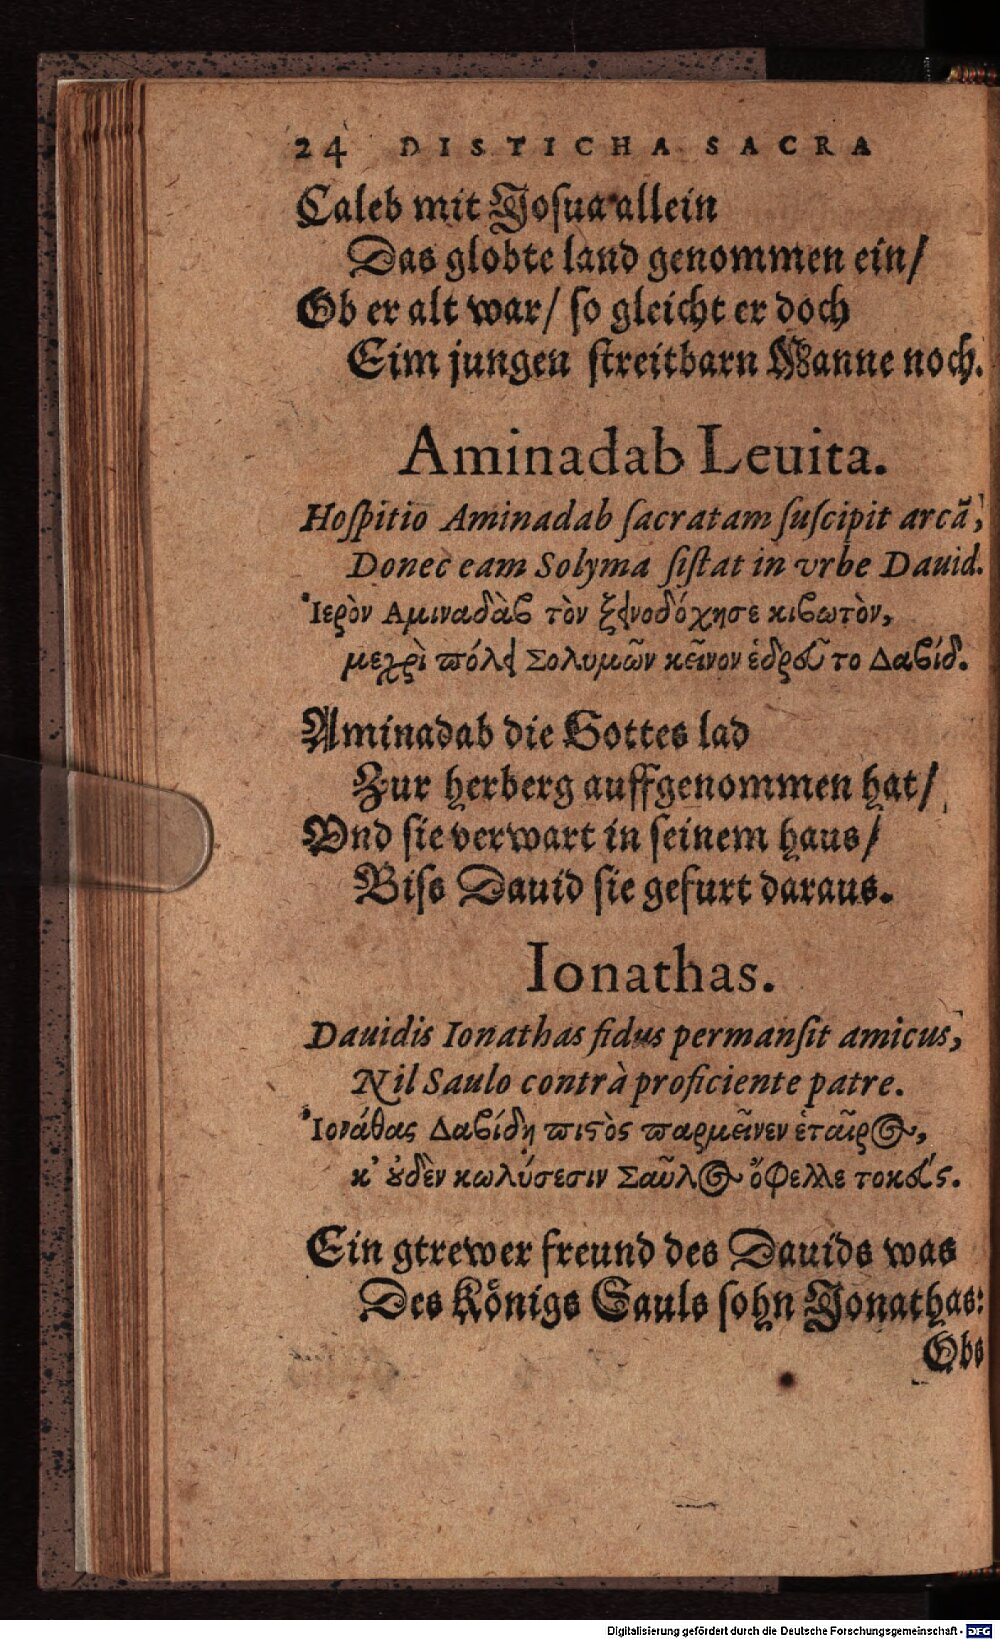 24 DISTICHA SACRA
Caleb mit Josua allein
Das globte land genommen ein/
Ob er alt war/ so gleicht er doch
Eim jungen streitbarn Manne noch.
Aminadab Leuita.
Hoſpitio Aminadab ſacratam ſuſcipit arcã,
Donec eam Solyma ſiſtat in vrbe Dauid.
Ἱερὸν Αμιναδὰβ τὸν ξεινοδόχησε κιβωτὸν,
μεχρὶ πόλει Σολυμῶν κεῖνον ἑδροῦτο Δαβίδ.
Aminadab die Gottes lad
Zur herberg auffgenommen hat/
Vnd ſie verwart in ſeinem haus/
Biſs Dauid ſie gefurt daraus.
Ionathas.
Dauidis Ionathas fidus permanſit amicus,
Nil Saulo contrà proficiente patre.
Ἰονάθας Δαβίδη πιστὸς παρμεῖνεν ἑταῖρος,
κ' οὐδὲν κωλύσεσιν Σαῦλος ὄφελλε τοκεύς.
Ein gtrewer freund des Dauids was
Des Königs Sauls ſohn Jonathas:
Obs
Digitalisierung gefördert durch die Deutsche Forschungsgemeinschaft - DFG